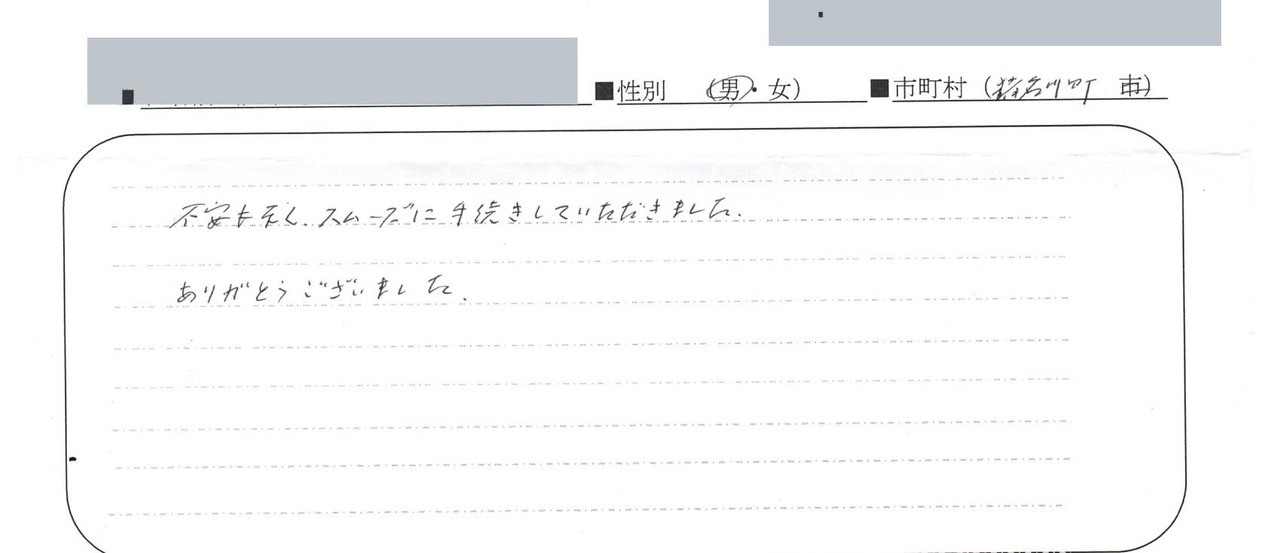 ■性別 (男・女) ■市町村 (猪名川町 市)
不安もなく、スムーズに手続きしていただきました。
ありがとうございました。